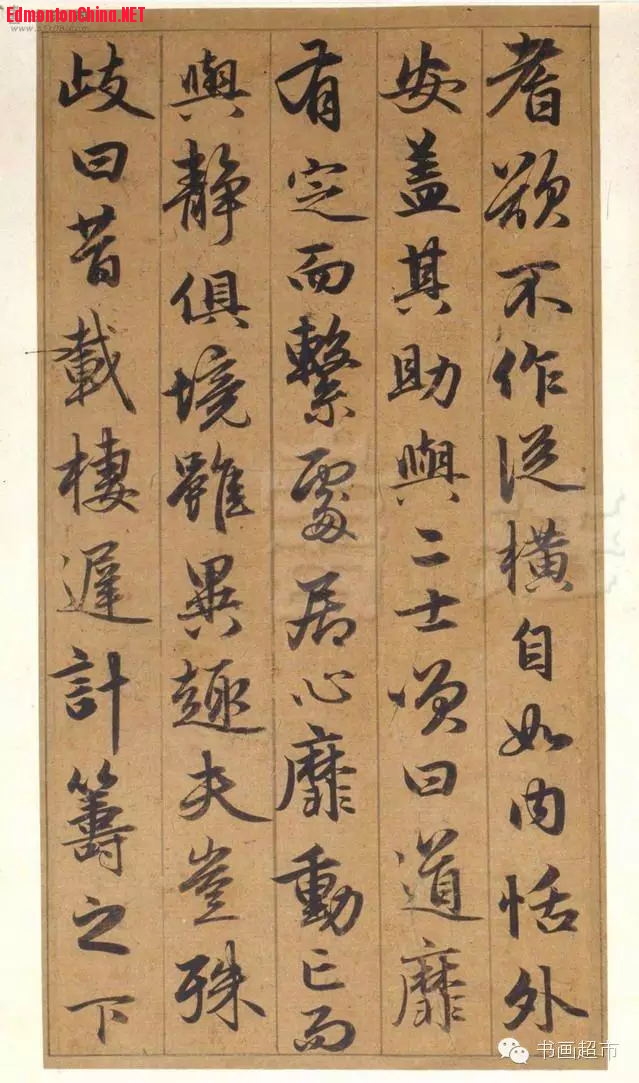 EdmontonChina.NET
耆欲不作從橫自如內恬外
安盖其助與二士頌曰道靡
有定而繫處居心靡動亡而
與靜俱境雖異趣夫豈殊
歧曰昔載棲遲計籌之下
书画超市